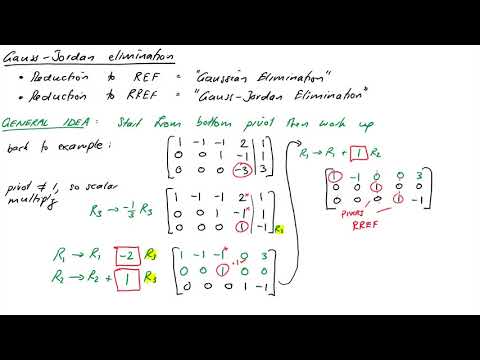 Gauss-Jordan elimination
• Reduction to REF = "Gaussian Elimination"
• Reduction to RREF = "Gauss-Jordan Elimination"
GENERAL IDEA: Start from bottom pivot then work up
back to example:
1 -1 -1 2 | 1
0 0 1 -1 | 1
0 0 0 -3 | 3
pivot ≠ 1, so scalar
multiply
R₃ → -⅓ R₃
1 -1 -1 2* | 1
0 0 1 -1* | 1
0 0 0 1 | -1 R₃
R₁ → R₁ -2 R₃
R₂ → R₂ + 1 R₃
1 -1 -1* 0 3
0 0 1 0 0
0 0 0 1 -1
R₁ → R₁ + 1 R₂
1 -1 0 0 3
0 0 1 0 0
0 0 0 1 -1
PIVOTS
RREF